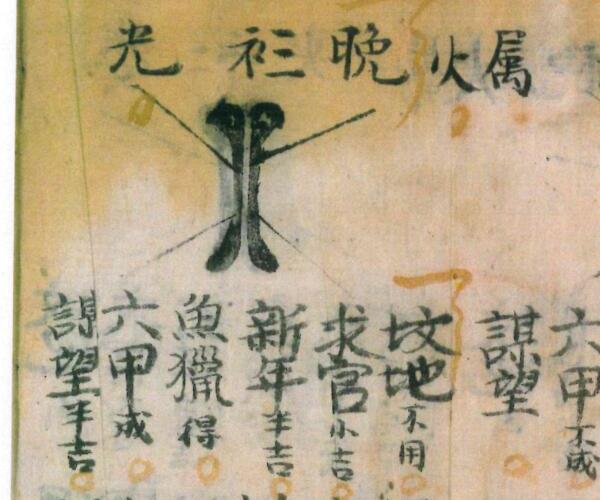 属火晚光
六甲不成
謀望
坟地不用
求官小吉
新年半吉
魚獵得
六甲成
謀望半吉